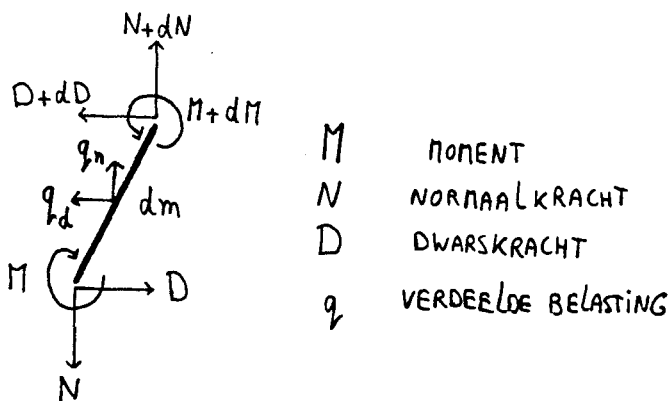 N+dN
D+dD
M+dM
qn
qd
dm
M
D
N
M MOMENT
N NORMAALKRACHT
D DWARSKRACHT
q VERDEELDE BELASTING